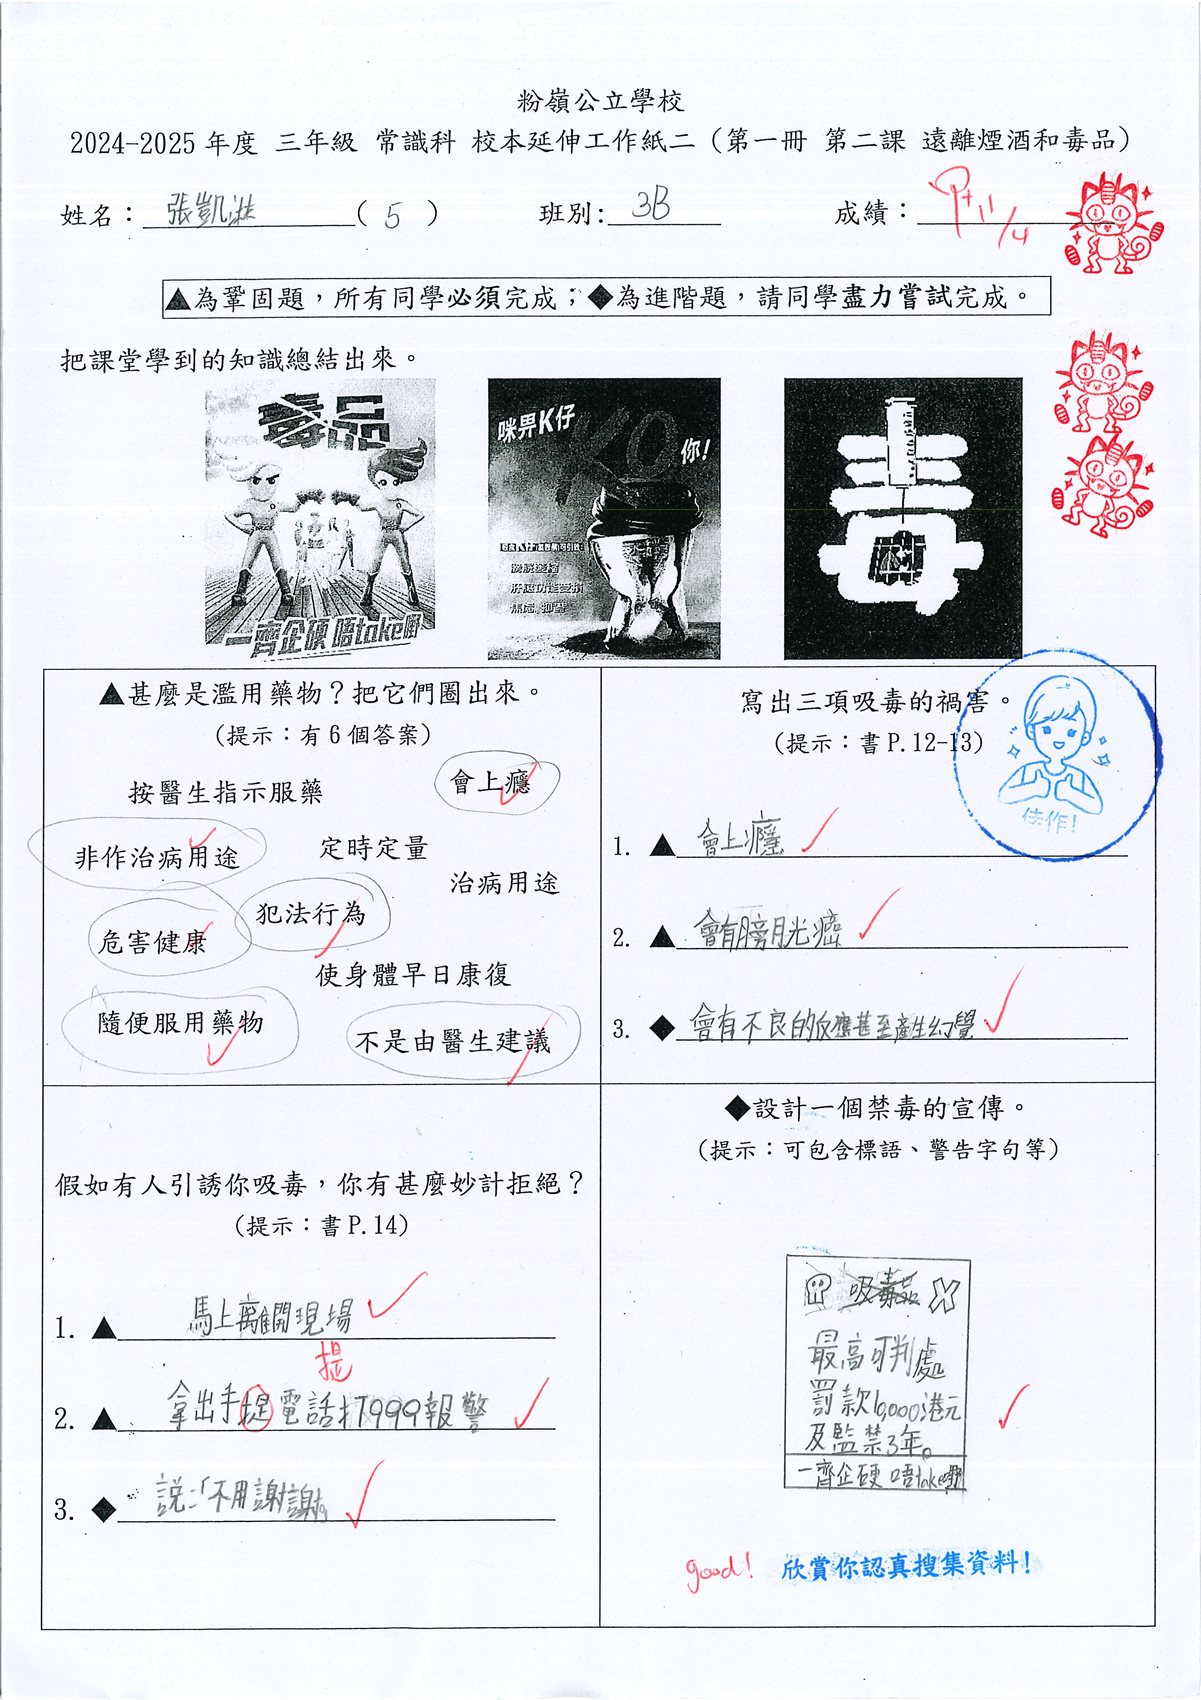 粉嶺公立學校
2024-2025 年度 三年級 常識科 校本延伸工作紙二（第一冊 第二課 遠離煙酒和毒品）
姓名：張凱淋（ 5 ） 班別: 3B 成績：
▲為鞏固題，所有同學必須完成；◆為進階題，請同學盡力嘗試完成。
把課堂學到的知識總結出來。
毒品
一齊企硬 唔take嘢
咪畀K仔
KO
你！
毒
▲甚麼是濫用藥物？把它們圈出來。
(提示：有 6 個答案)
按醫生指示服藥
會上癮
非作治病用途
定時定量
治病用途
犯法行為
危害健康
使身體早日康復
隨便服用藥物
不是由醫生建議
寫出三項吸毒的禍害。
(提示：書 P.12-13)
佳作！
1. ▲會上癮
2. ▲會有膀胱癌
3. ◆會有不良的反應甚至產生幻覺
假如有人引誘你吸毒，你有甚麼妙計拒絕？
(提示：書 P.14)
1. ▲馬上離開現場
提
2. ▲拿出手提電話打999報警
3. ◆說：「不用謝謝。
◆設計一個禁毒的宣傳。
(提示：可包含標語、警告字句等)
吸毒品 X
最高可判處
罰款10,000港元
及監禁3年。
一齊企硬 唔take嘢
good!
欣賞你認真搜集資料！